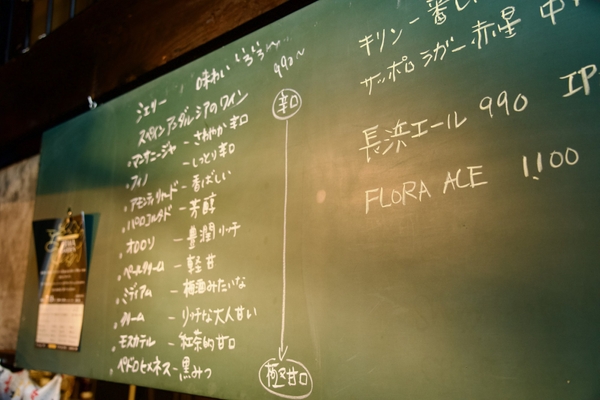 シェリー 味わいいろいろ〜 990〜
スペインアンダルシアのワイン
・マンサニージャ - さわやか辛口
・フィノ - しっとり辛口
・アモンティリャード - 香ばしい
・パロコルタド - 芳醇
・オロロソ - 豊潤リッチ
・ペールクリーム - 軽甘
・ミディアム - 梅酒みたいな
・クリーム - リッチな大人甘い
・モスカテル - 紅茶的甘口
・ペドロヒメネス - 黒みつ
辛口
極甘口
キリン一番し
サッポロラガー赤星 中
長浜エール 990 IP
FLORA ACE 1,100